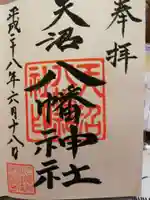 奉拝
天沼
八幡神社
平成二十八年六月十八日